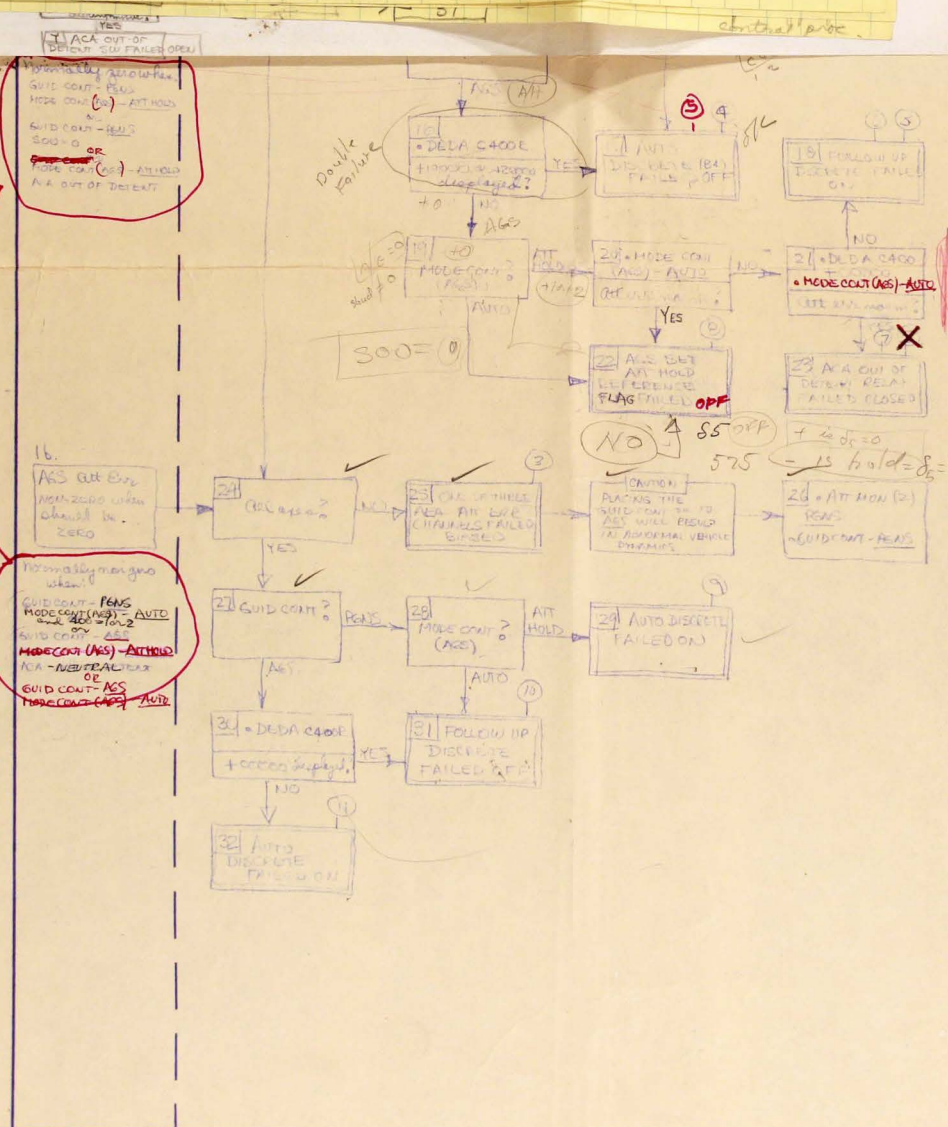 YES
ACA OUT-OF
DETENT SW FAILED OPEN
Normally zero when:
GUID CONT - PGNS
MODE CONT (AGS) - ATT HOLD
or
GUID CONT - PGNS
S00=0
OR
MODE CONT (AGS) - ATT HOLD
ACA OUT OF DETENT
AGS A/H
Double
Failure
16
• DEDA C400R
displayed?
YES
NO
+0
AGS
5 4
17 AUTO
DISCRETE (B4)
FAILED OFF
18 FOLLOW UP
DISCRETE FAILED
ON
19 +0
MODE CONT?
(AGS)
ATT
HOLD
+1 or +2
AUTO
20 • MODE CONT
(AGS) - AUTO
NO
YES
NO
21 • DEDA C400
• MODE CONT (AGS) - AUTO
Att err norm?
7 X
S00= 0
8
22 AGS SET
ATT HOLD
REFERENCE
FLAG FAILED OFF
23 ACA OUT OF
DETENT RELAY
FAILED CLOSED
NO
OFF
1b.
AGS Att Err
NON-ZERO when
should be
ZERO
24
NO
YES
3
25 ONE OF THREE
AEA ATT ERR
CHANNELS FAILED
BIASED
CAUTION
PLACING THE
GUID CONT SW TO
AGS WILL RESULT
IN ABNORMAL VEHICLE
DYNAMICS
26 • ATT MON (2)
PGNS
• GUID CONT - PGNS
Normally non zero
when:
GUID CONT - PGNS
MODE CONT (AGS) - AUTO
and 400 = 1 or 2
or
GUID CONT - AGS
MODE CONT (AGS) - ATT HOLD
ACA - NEUTRAL
OR
GUID CONT - AGS
MODE CONT (AGS) - AUTO
27 GUID CONT?
PGNS
AGS
28
MODE CONT?
(AGS)
ATT
HOLD
AUTO
9
29 AUTO DISCRETE
FAILED ON
30 • DEDA C400R
+00000 displayed?
YES
NO
10
31 FOLLOW UP
DISCRETE
FAILED OFF
11
32 AUTO
DISCRETE
FAILED ON